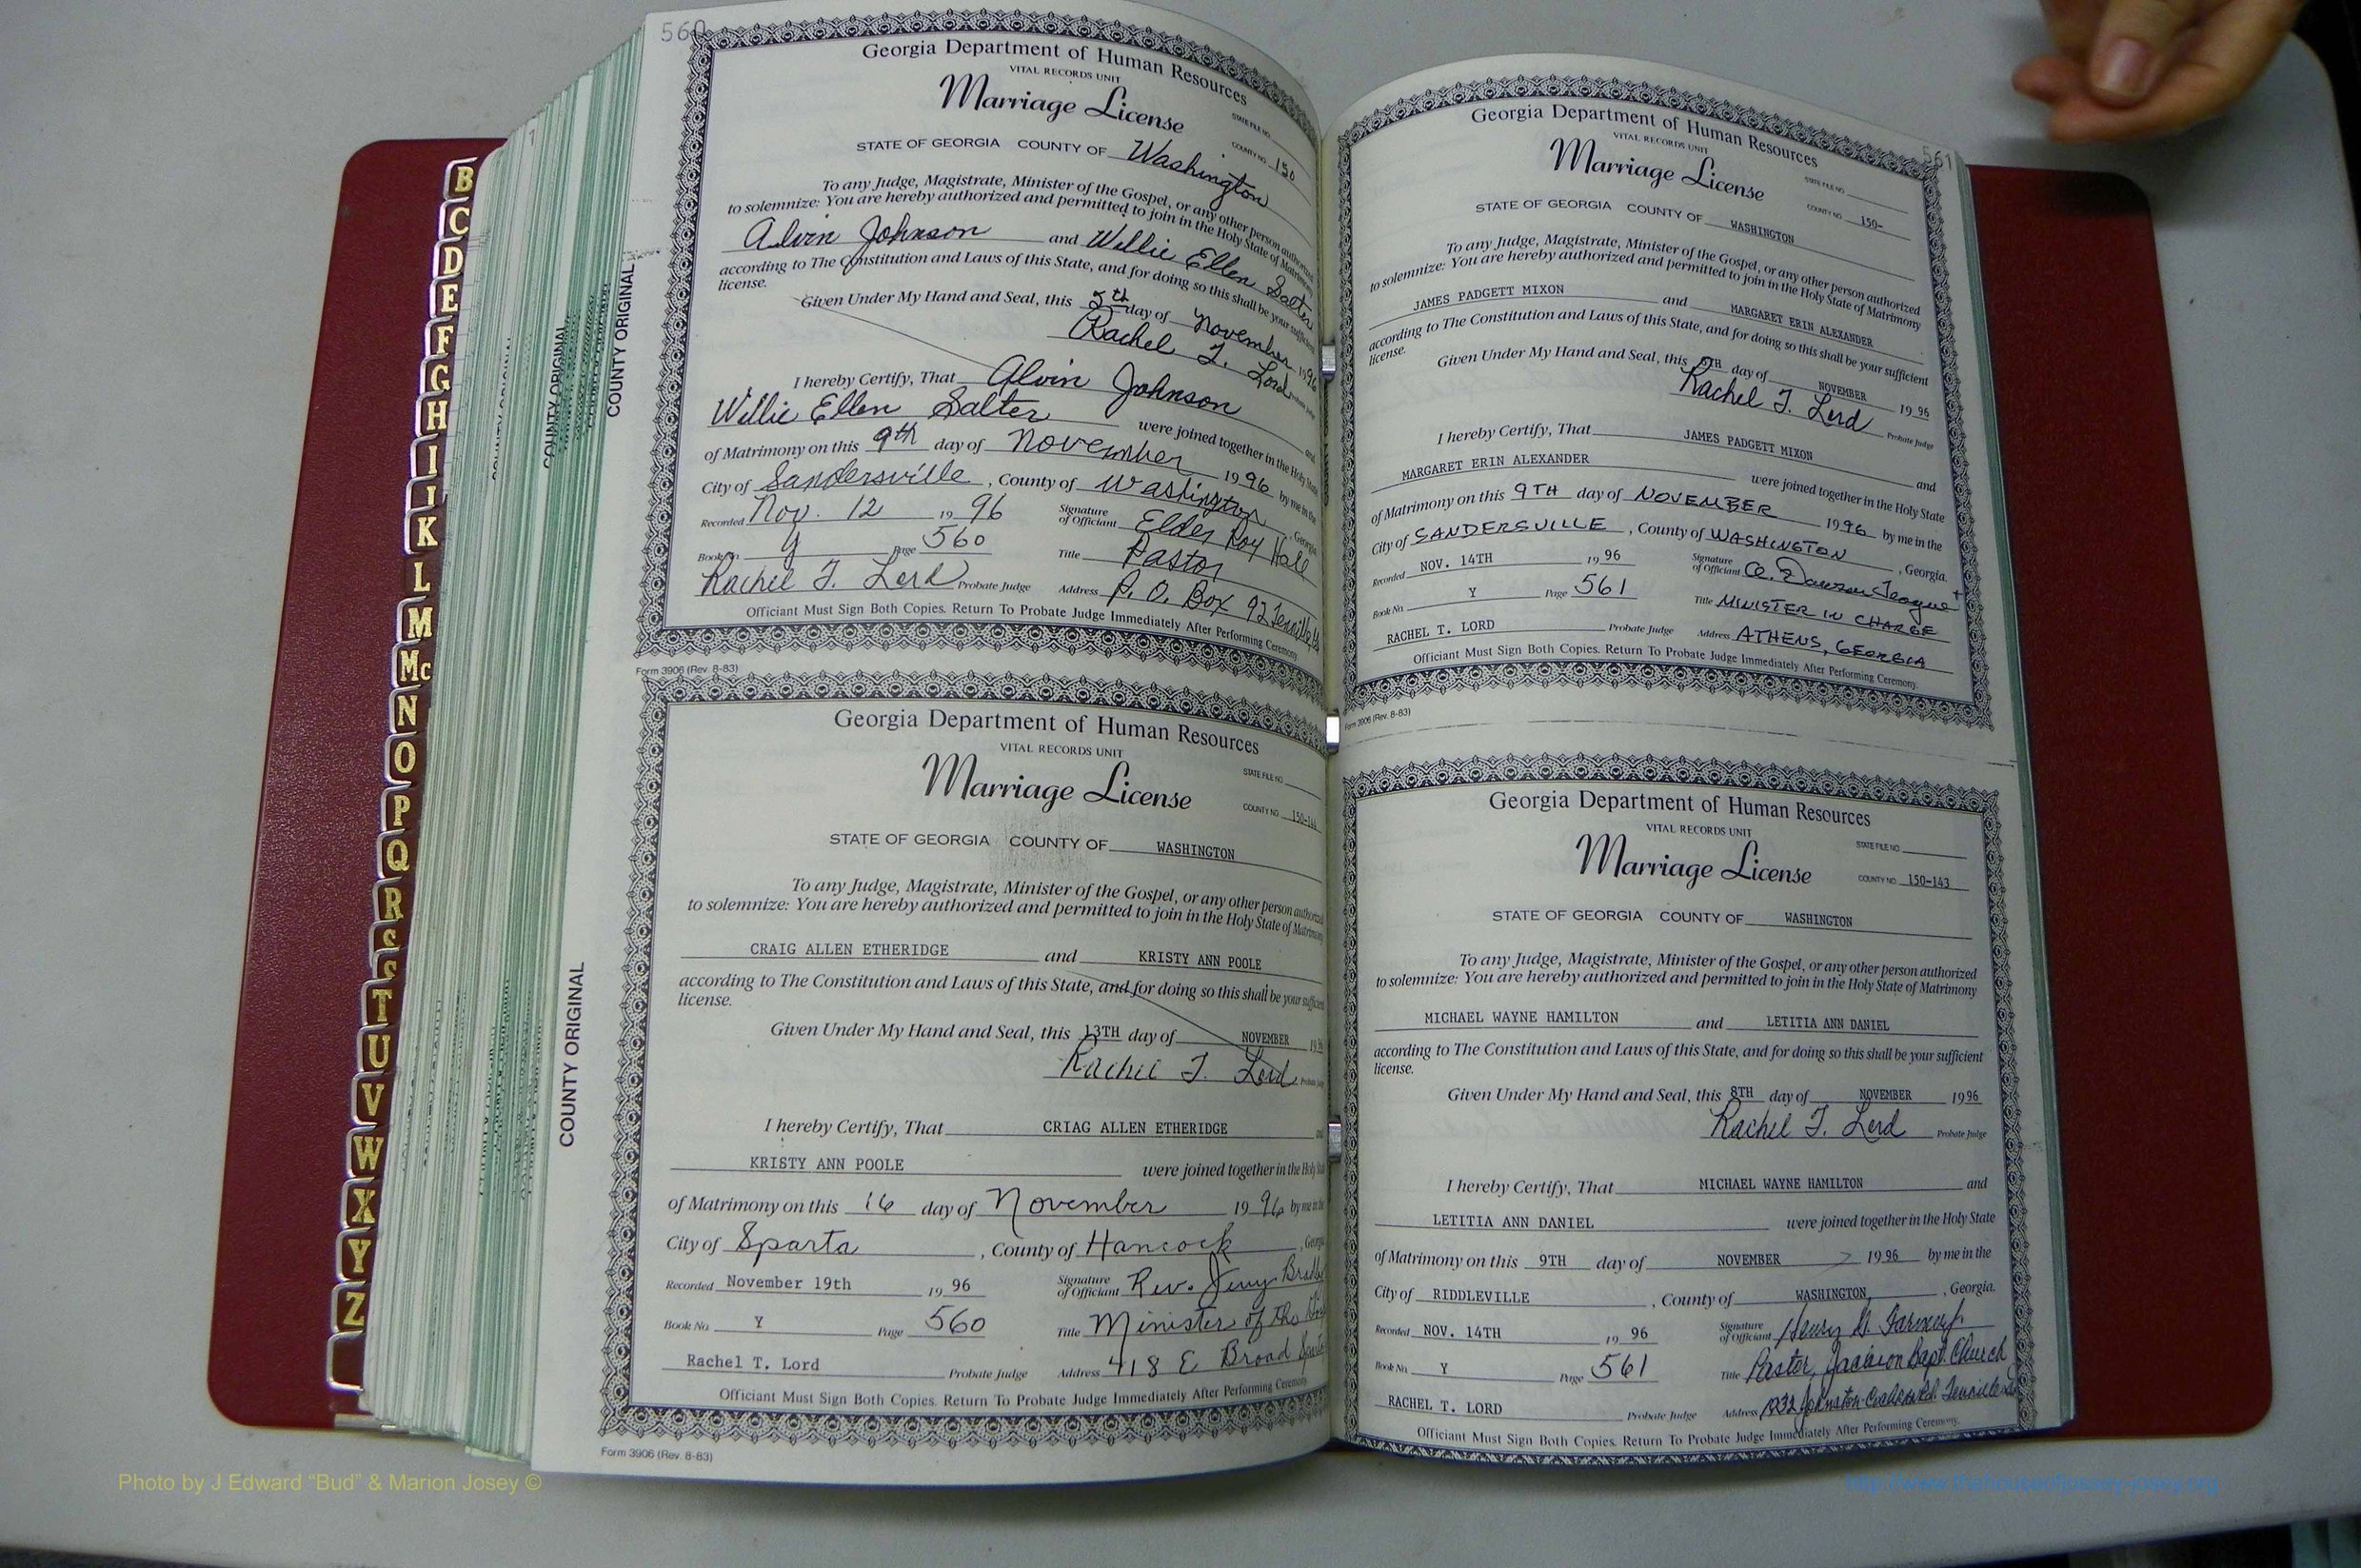 560
Georgia Department of Human Resources
VITAL RECORDS UNIT
Marriage License
STATE FILE NO.
COUNTY NO. 150
STATE OF GEORGIA COUNTY OF Washington
To any Judge, Magistrate, Minister of the Gospel, or any other person authorized
to solemnize: You are hereby authorized and permitted to join in the Holy State of Matrimony
Alvin Johnson and Willie Ellen Salter
according to The Constitution and Laws of this State, and for doing so this shall be your sufficient
license.
Given Under My Hand and Seal, this 5th day of November 1996
Rachel T. Lord Probate Judge
I hereby Certify, That Alvin Johnson and
Willie Ellen Salter were joined together in the Holy State
of Matrimony on this 9th day of November 1996 by me in the
City of Sandersville, County of Washington, Georgia
Recorded Nov. 12 1996 Signature of Officiant Elder Roy Hall
Book No. Y Page 560 Title Pastor
Rachel T. Lord Probate Judge Address P. O. Box 92
Officiant Must Sign Both Copies. Return To Probate Judge Immediately After Performing Ceremony
Form 3906 (Rev. 8-83)
COUNTY ORIGINAL
Georgia Department of Human Resources
VITAL RECORDS UNIT
Marriage License
STATE FILE NO.
COUNTY NO. 150-144
STATE OF GEORGIA COUNTY OF WASHINGTON
To any Judge, Magistrate, Minister of the Gospel, or any other person authorized
to solemnize: You are hereby authorized and permitted to join in the Holy State of Matrimony
CRAIG ALLEN ETHERIDGE and KRISTY ANN POOLE
according to The Constitution and Laws of this State, and for doing so this shall be your sufficient
license.
Given Under My Hand and Seal, this 13TH day of NOVEMBER 1996
Rachel T. Lord Probate Judge
I hereby Certify, That CRIAG ALLEN ETHERIDGE and
KRISTY ANN POOLE were joined together in the Holy State
of Matrimony on this 16 day of November 1996 by me in the
City of Sparta, County of Hancock, Georgia
Recorded November 19th 1996 Signature of Officiant Rev. Jerry
Book No. Y Page 560 Title Minister of the
Rachel T. Lord Probate Judge Address 418 E Broad
Officiant Must Sign Both Copies. Return To Probate Judge Immediately After Performing Ceremony.
Form 3906 (Rev. 8-83)
COUNTY ORIGINAL
561
Georgia Department of Human Resources
VITAL RECORDS UNIT
Marriage License
STATE FILE NO.
COUNTY NO. 150-
STATE OF GEORGIA COUNTY OF WASHINGTON
To any Judge, Magistrate, Minister of the Gospel, or any other person authorized
to solemnize: You are hereby authorized and permitted to join in the Holy State of Matrimony
JAMES PADGETT MIXON and MARGARET ERIN ALEXANDER
according to The Constitution and Laws of this State, and for doing so this shall be your sufficient
license.
Given Under My Hand and Seal, this 8TH day of NOVEMBER 1996
Rachel T. Lord Probate Judge
I hereby Certify, That JAMES PADGETT MIXON and
MARGARET ERIN ALEXANDER were joined together in the Holy State
of Matrimony on this 9TH day of NOVEMBER 1996 by me in the
City of SANDERSVILLE, County of WASHINGTON, Georgia.
Recorded NOV. 14TH 1996 Signature of Officiant Q. Dawson Teague
Book No. Y Page 561 Title MINISTER IN CHARGE
RACHEL T. LORD Probate Judge Address ATHENS, GEORGIA
Officiant Must Sign Both Copies. Return To Probate Judge Immediately After Performing Ceremony.
Form 3906 (Rev. 8-83)
Georgia Department of Human Resources
VITAL RECORDS UNIT
Marriage License
STATE FILE NO.
COUNTY NO. 150-143
STATE OF GEORGIA COUNTY OF WASHINGTON
To any Judge, Magistrate, Minister of the Gospel, or any other person authorized
to solemnize: You are hereby authorized and permitted to join in the Holy State of Matrimony
MICHAEL WAYNE HAMILTON and LETITIA ANN DANIEL
according to The Constitution and Laws of this State, and for doing so this shall be your sufficient
license.
Given Under My Hand and Seal, this 8TH day of NOVEMBER 1996
Rachel T. Lord Probate Judge
I hereby Certify, That MICHAEL WAYNE HAMILTON and
LETITIA ANN DANIEL were joined together in the Holy State
of Matrimony on this 9TH day of NOVEMBER 1996 by me in the
City of RIDDLEVILLE, County of WASHINGTON, Georgia.
Recorded NOV. 14TH 1996 Signature of Officiant Henry
Book No. Y Page 561 Title Pastor, Jackson Bapt. Church
RACHEL T. LORD Probate Judge Address 1932 Tennille
Officiant Must Sign Both Copies. Return To Probate Judge Immediately After Performing Ceremony.
B
C
D
E
F
G
H
I
J
K
L
M
Mc
N
O
P
Q
R
S
S
T
U
V
W
X
Y
Z
Photo by J Edward “Bud” & Marion Josey ©
http://www.thehouseofjossey-josey.org